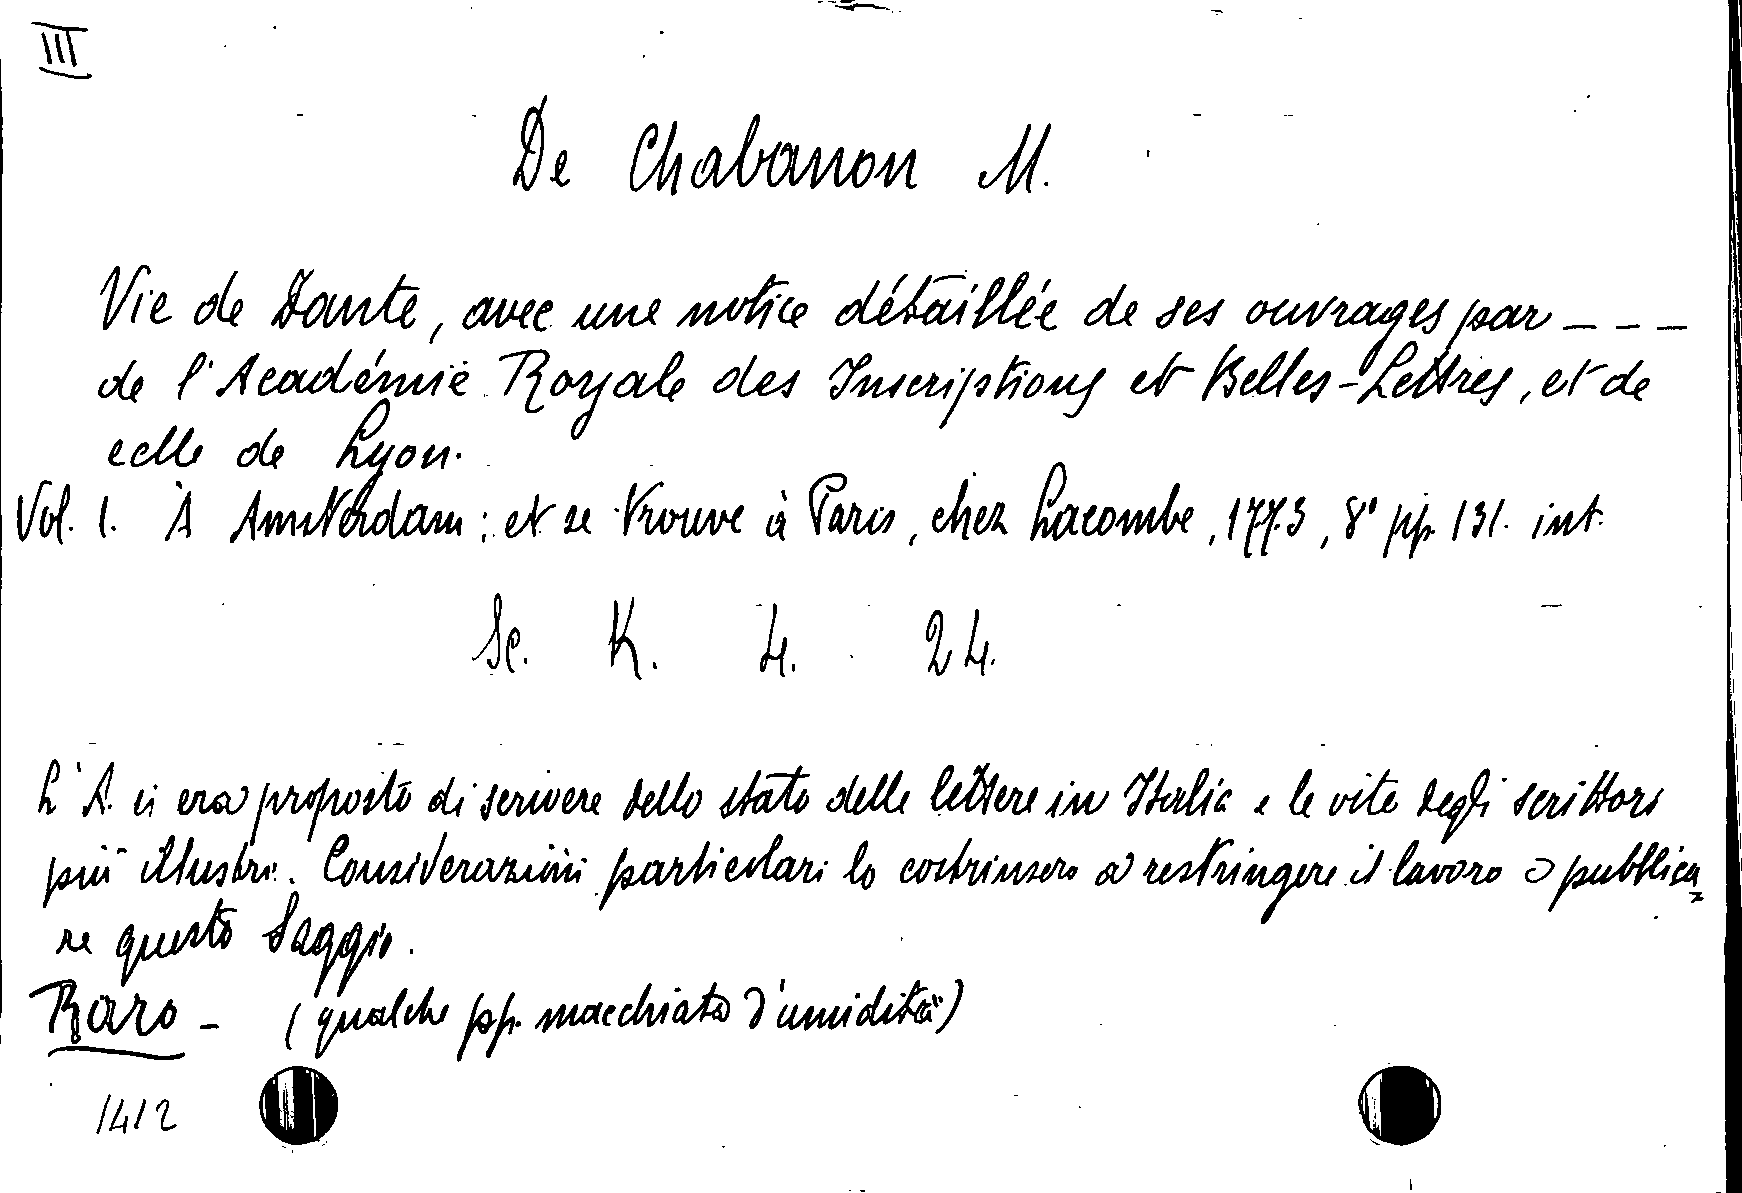 III
De Chabanon M.
Vie de Dante, avec une notice détaillée de ses ouvrages par _ _ _
de l'Académie Royale des Inscriptions et Belles-Lettres, et de
celle de Lyon.
Vol. 1. À Amsterdam; et se trouve à Paris, chez Lacombe, 1773, 8° pp. 131. int.
Sc. K. 4. 24.
L'A. si era proposto di scrivere dello stato delle lettere in Italia e le vite degli scrittori
più illustri. Considerazioni particolari lo costrinsero a restringere il lavoro a pubblica
re questo Saggio.
Raro - (qualche pp. macchiata d'umidità)
1412